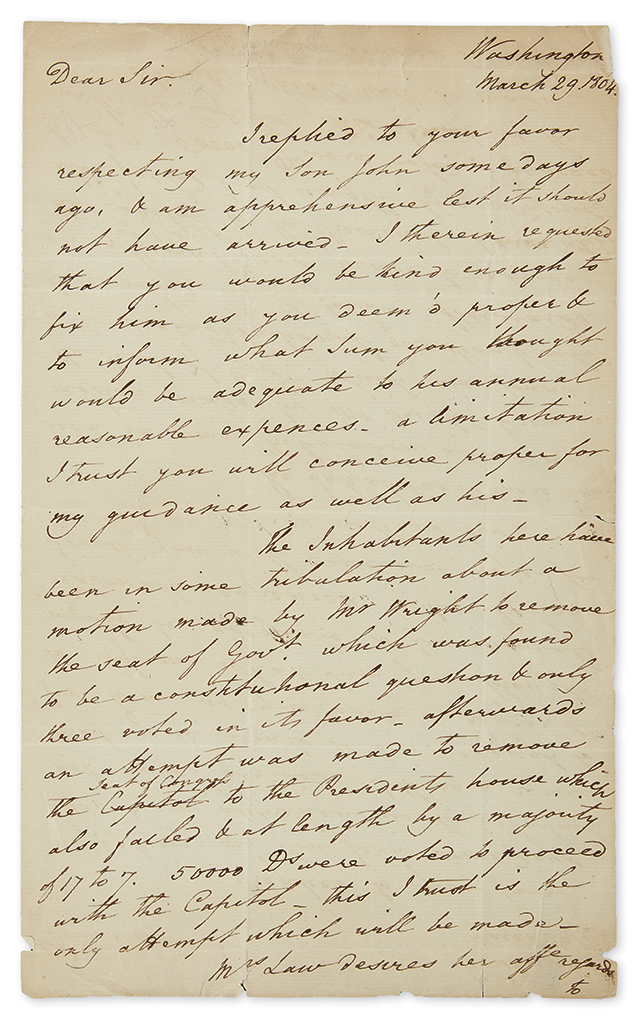 Washington
March 29. 1804.
Dear Sir.
I replied to your favor
respecting my Son John some days
ago, & am apprehensive lest it should
not have arrived - I therein requested
that you would be kind enough to
fix him as you deem'd proper &
to inform what Sum you thought
would be adequate to his annual
reasonable expences - a limitation
I trust you will conceive proper for
my guidance as well as his -
The Inhabitants here have
been in some tribulation about a
motion made by Mr Wright to remove
the seat of Govt which was found
to be a constitutional question & only
three voted in its favor - afterwards
an attempt was made to remove
Seat of Congress
the Capitol to the Presidents house which
also failed & at length by a majority
of 17 to 7. 50000 Ds were voted to proceed
with the Capitol - this I trust is the
only attempt which will be made -
Mrs Law desires her affe regards
to